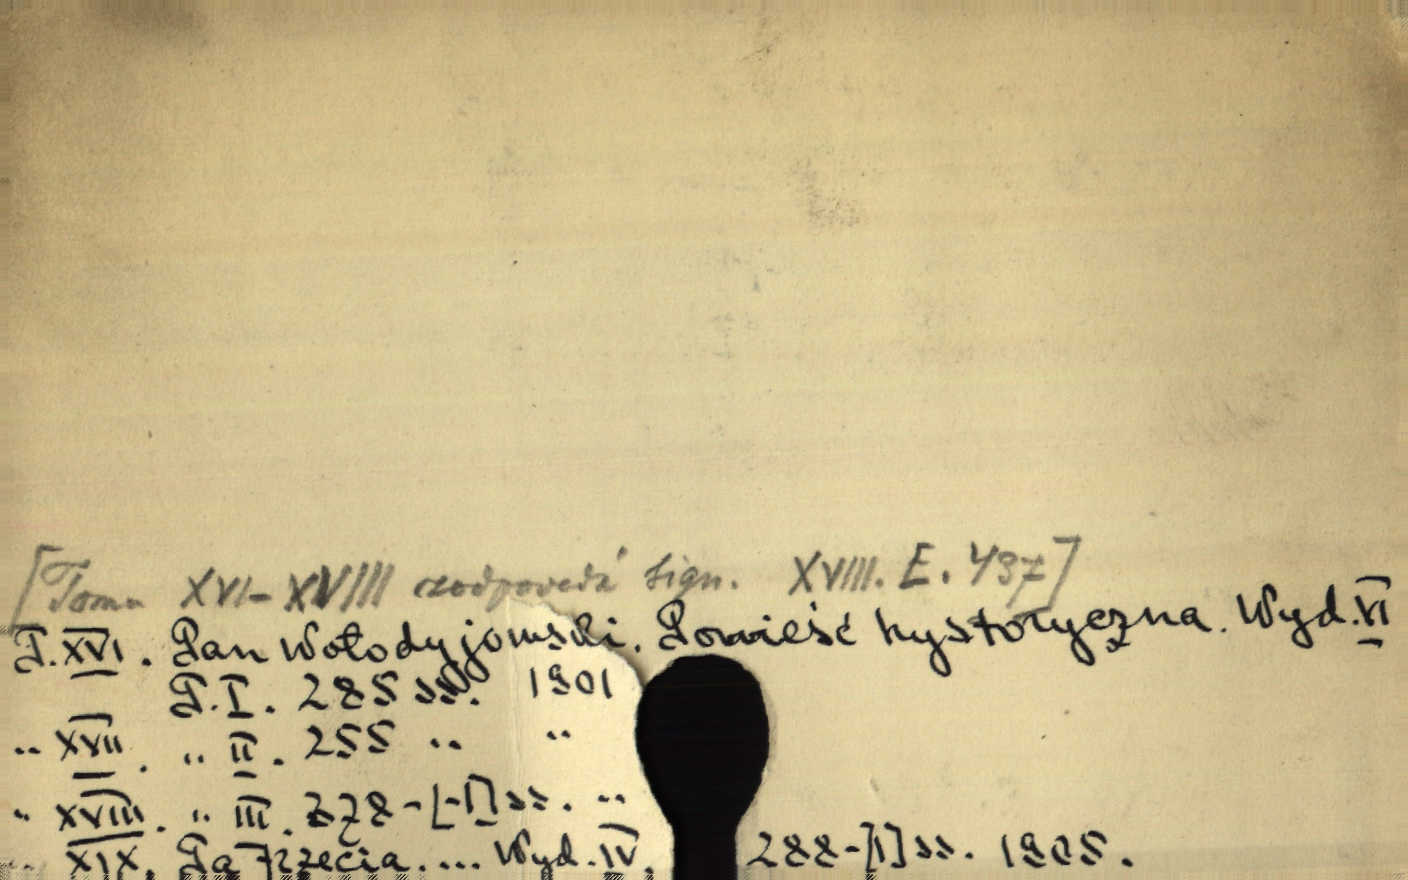 [Tomu XVI-XVIII zodpovedá sign. XVIII. E. 437]
T. XVI. Pan Wołodyjowski. Powieść hystoryczna. Wyd. VI
T. I. 285 ss. 1901
„ XVII. „ II. 255 „ „
„ XVIII. „ III. 278-[-1] ss. „
„ XIX. Ta trzecia.... Wyd. IV. 288-[1] ss. 1905.